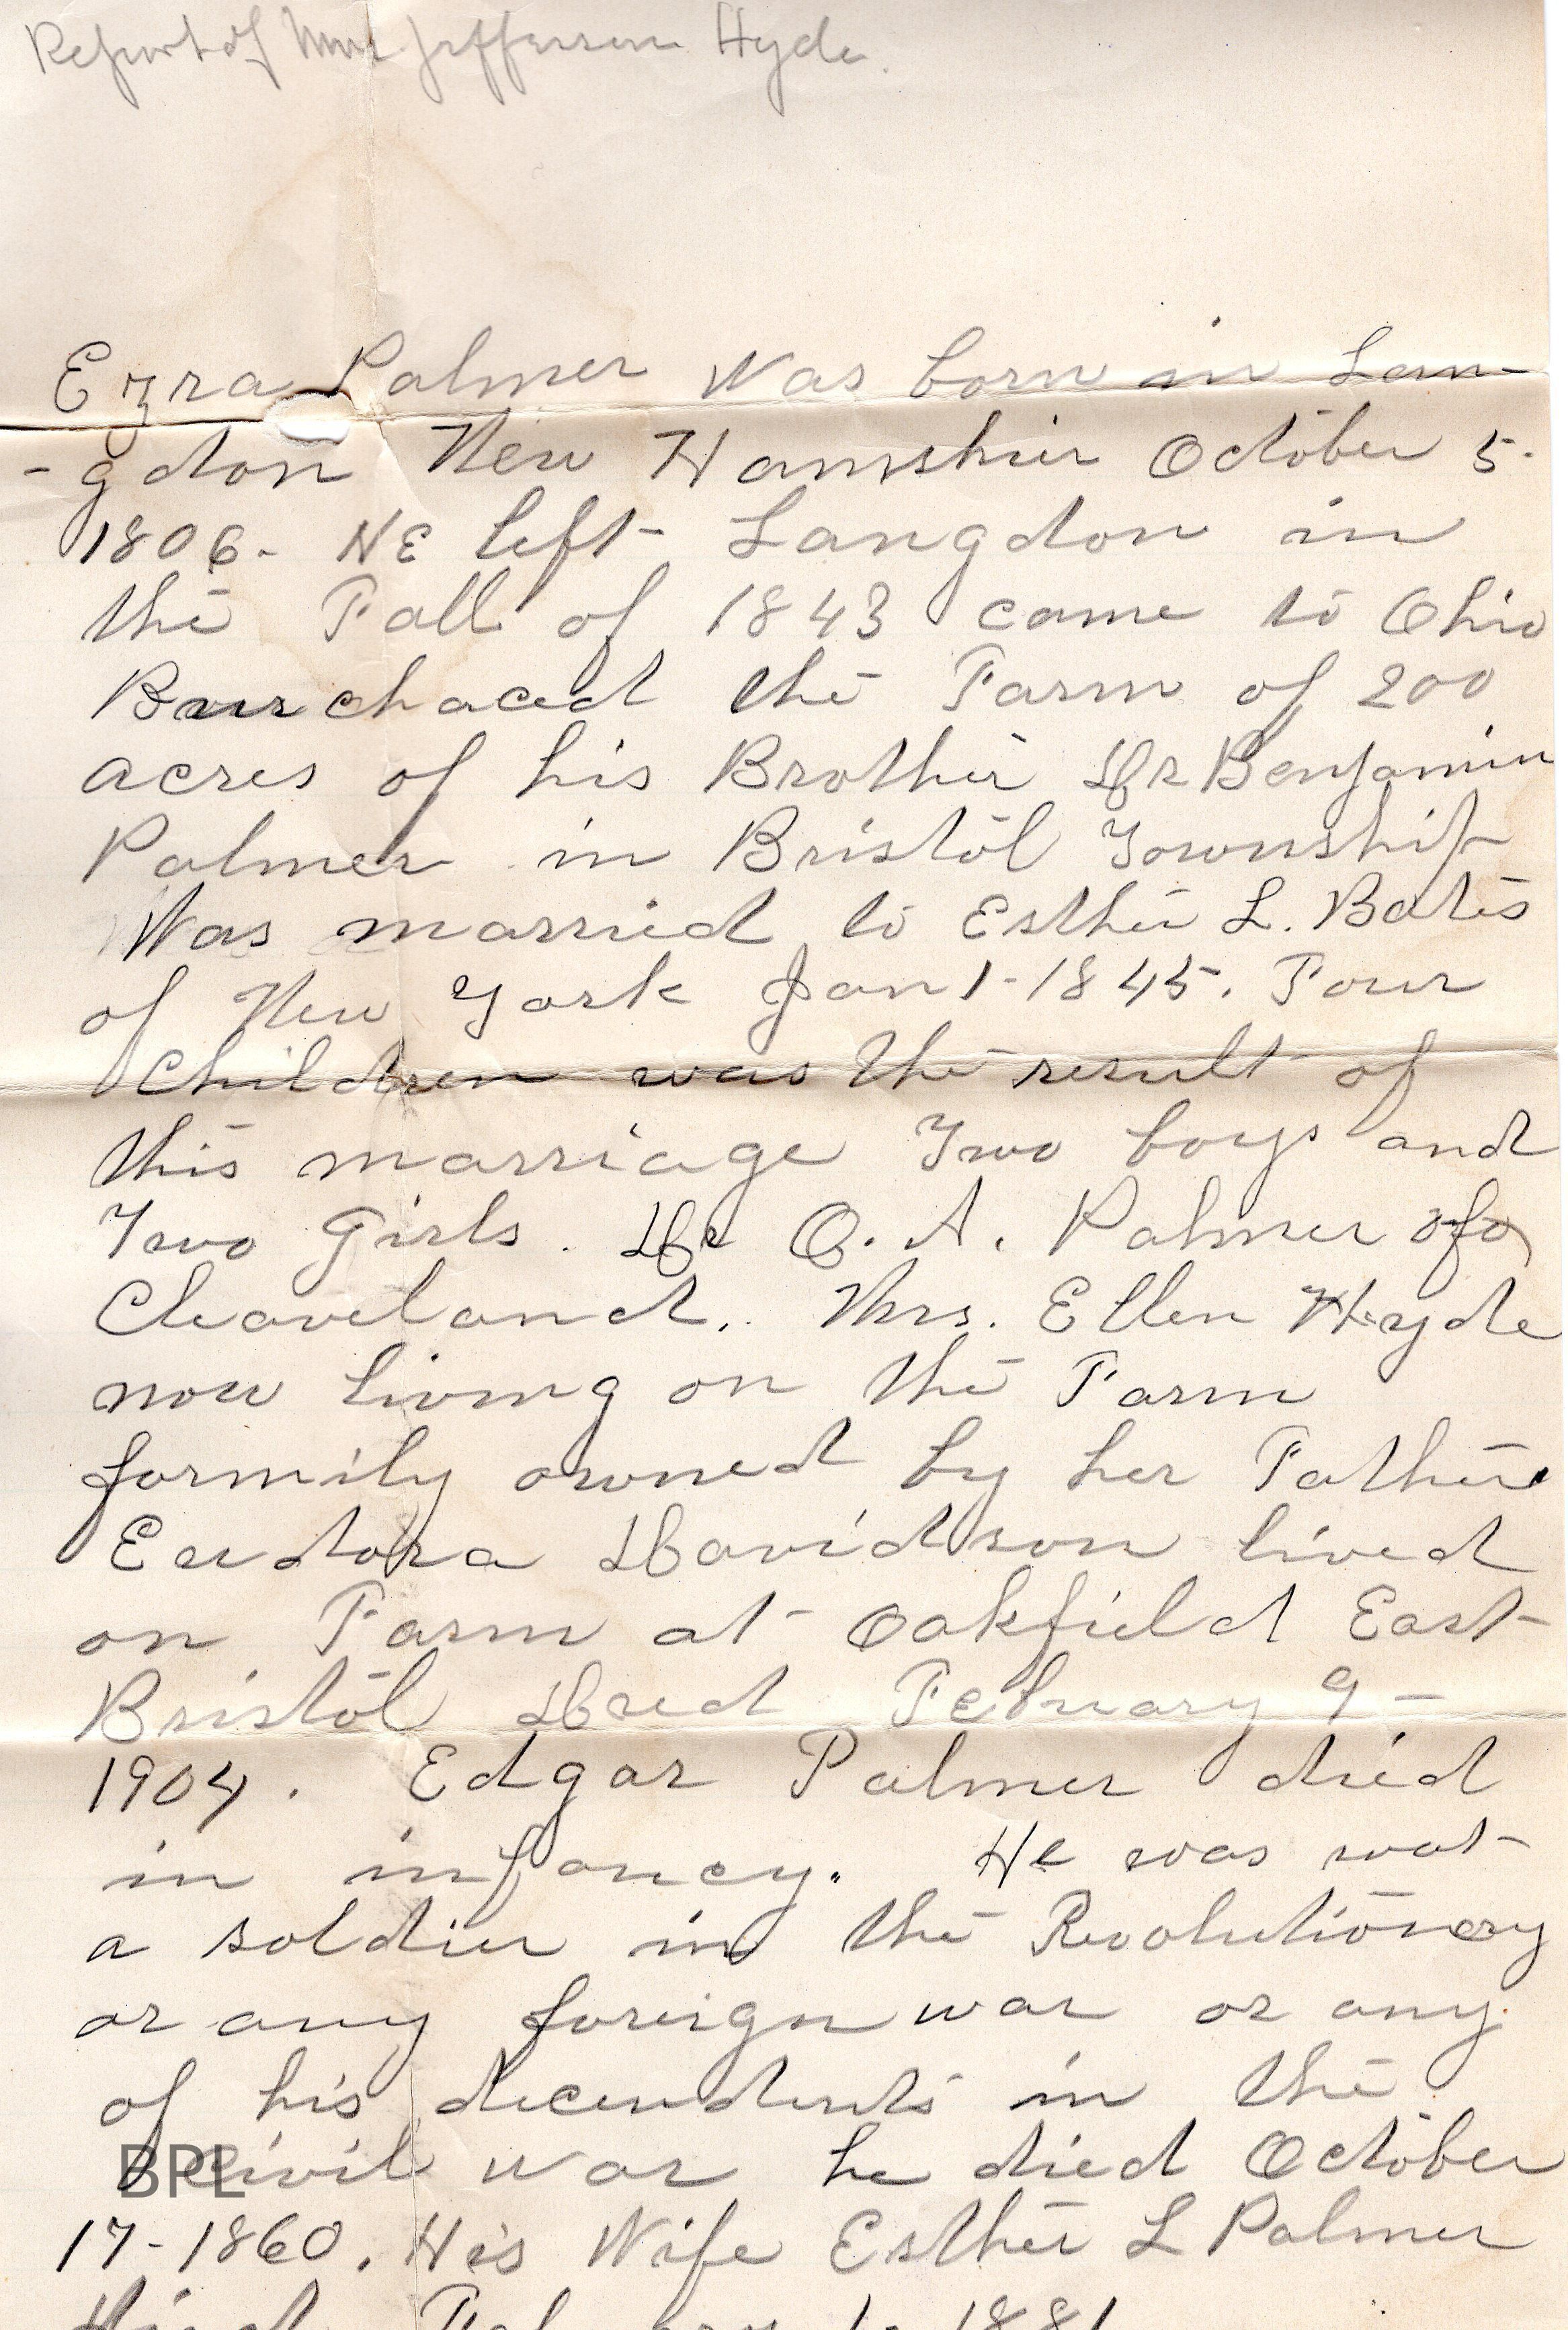 Report of Mrs Jefferson Hyde.
Ezra Palmer Was born in Lan-
-gdon New Hamshier October 5-
1806- HE left Langdon in
the Fall of 1843 came to Ohio
Baurchaced the Farm of 200
acres of his Brother Dr Benjamin
Palmer in Bristol Township
Was married to Esther L. Bates
of New York Jan 1-1845. Four
Children was the result of
this marriage Two boys and
Two Girls. Dr O. A. Palmer of
Cleaveland.. Mrs. Ellen Hyde
now living on the Farm
formily owned by her Father
Eudora Davidson lived
on Farm at Oakfield East
Bristol Died February 9-
1904. Edgar Palmer died
in infancy. He was not
a soldier in the Revolutionery
or any foreign war or any
of his decendents in the
Civil war he died October
17-1860. His Wife Esther L Palmer
Died 1-1881
BPL